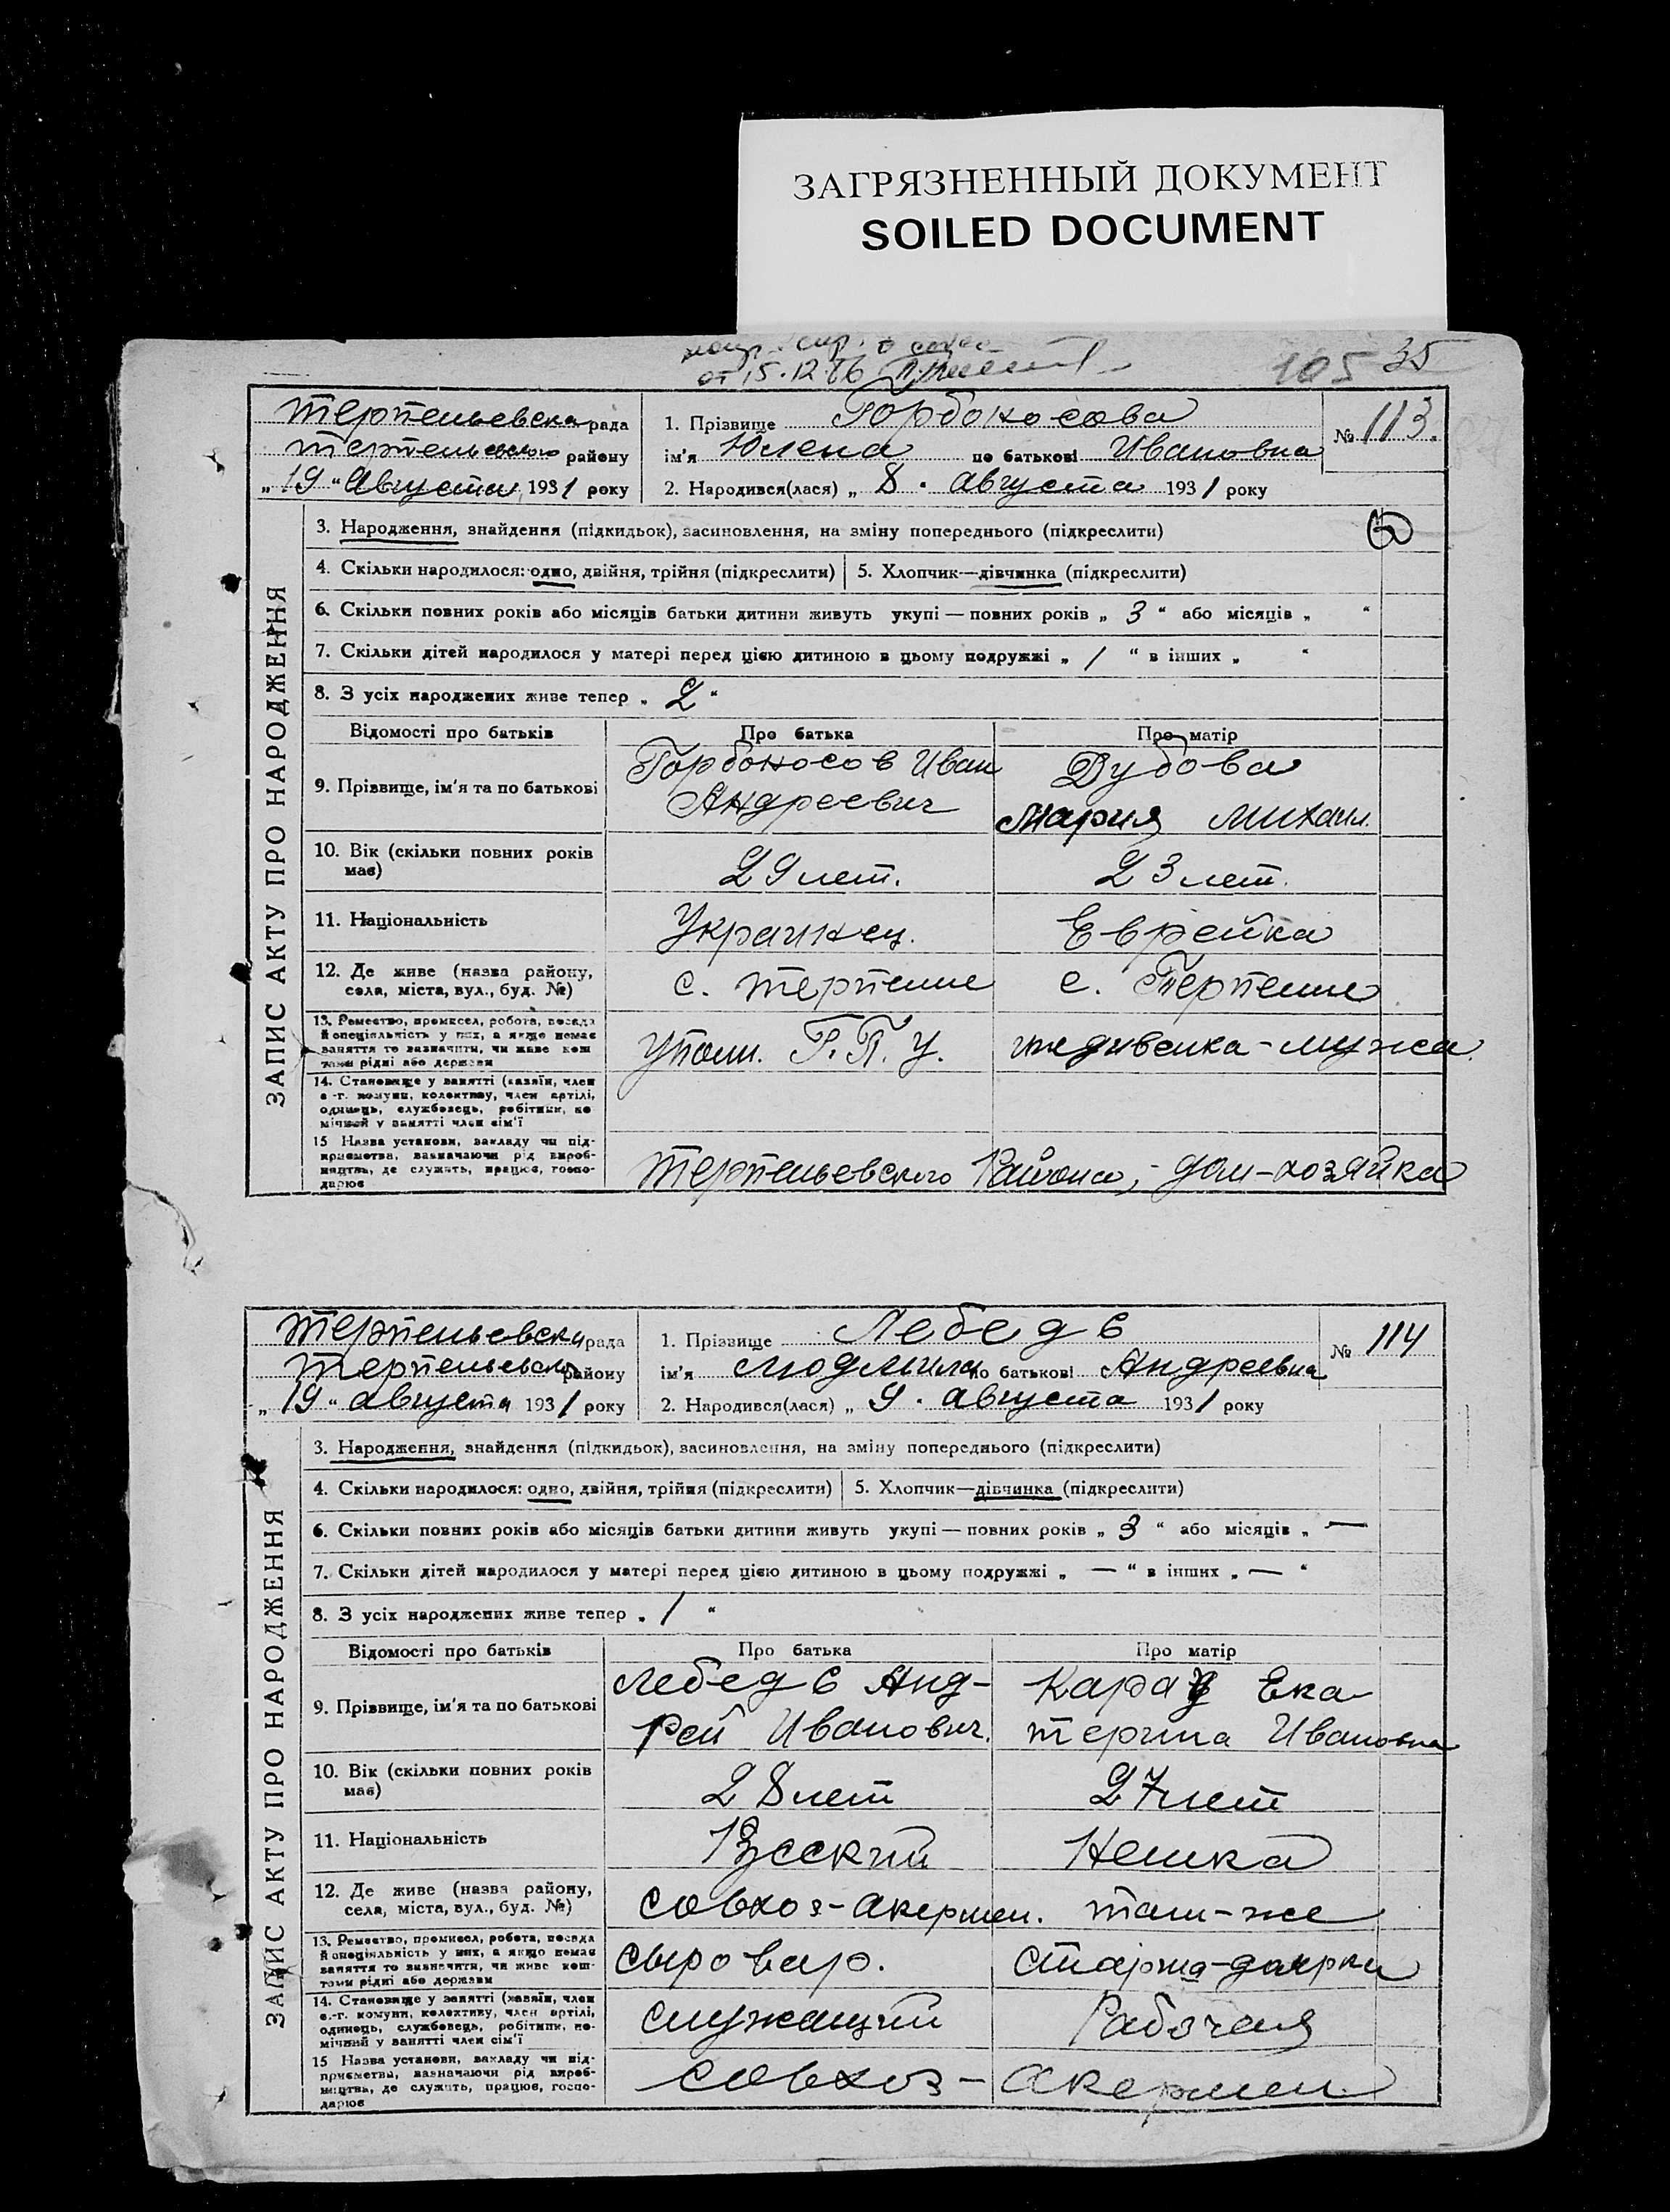 ЗАГРЯЗНЕННЫЙ ДОКУМЕНТ
SOILED DOCUMENT
от 15.12.86
105 35
Терпеньевска рада
Терпеньевского району
„19“ Августа 1931 року
1. Прізвище Горбоносова
ім'я Юлена по батькові Ивановна
2. Народився(лася) „ 8. Августа 1931 року
№ 113.
ЗАПИС АКТУ ПРО НАРОДЖЕННЯ
3. Народження, знайдення (підкидьок), засиновлення, на зміну попереднього (підкреслити)
4. Скільки народилося: одно, двійня, трійня (підкреслити) 5. Хлопчик—дівчинка (підкреслити)
6. Скільки повних років або місяців батьки дитини живуть укупі — повних років „ 3 “ або місяців „ “
7. Скільки дітей народилося у матері перед цією дитиною в цьому подружжі „ 1 “ в інших „ “
8. З усіх народжених живе тепер „ 2 “
Відомості про батьків Про батька Про матір
9. Прізвище, ім'я та по батькові
Горбоносов Иван
Андреевич
Дубова
Мария Михаил.
10. Вік (скільки повних років
має)
29 лет. 23 лет.
11. Національність Украинец. Еврейка
12. Де живе (назва району,
села, міста, вул., буд. №)
с. Терпение с. Терпение
13. Ремество, промисел, робота, посада
й спеціяльність у них, а якщо немає
заняття то зазначити, чи живе кош
тами рідні або держави
Уполн. Г.П.У. иждивенка-мужа.
14. Становище у занятті (хазяїн, член
с.-г. комуни, колективу, член артілі,
одинець, службовець, робітник, по
мічний у занятті член сім'ї
15 Назва установи, закладу чи під-
приємства, зазначаючи рід вироб-
ництва, де служить, працює, госпо-
дарює
Терпеньевского Района, - дом-хозяйка
Терпеньевска рада
Терпеньевского району
„19“ августа 1931 року
1. Прізвище Лебедь
ім'я Людмила по батькові Андреевна
2. Народився(лася) „ 9. августа 1931 року
№ 114
ЗАПИС АКТУ ПРО НАРОДЖЕННЯ
3. Народження, знайдення (підкидьок), засиновлення, на зміну попереднього (підкреслити)
4. Скільки народилося: одно, двійня, трійня (підкреслити) 5. Хлопчик—дівчинка (підкреслити)
6. Скільки повних років або місяців батьки дитини живуть укупі — повних років „ 3 “ або місяців „ —
7. Скільки дітей народилося у матері перед цією дитиною в цьому подружжі „ — “ в інших „ — “
8. З усіх народжених живе тепер „ 1 “
Відомості про батьків Про батька Про матір
9. Прізвище, ім'я та по батькові
Лебедь Анд-
рей Иванович.
Ека-
терина Ивановна
10. Вік (скільки повних років
має)
28 лет 27 лет
11. Національність Русский Немка
12. Де живе (назва району,
села, міста, вул., буд. №)
совхоз-Акермен. там-же
13. Ремество, промисел, робота, посада
й спеціяльність у них, а якщо немає
заняття то зазначити, чи живе кош-
тами рідні або держави
сыровар. старша-доярка
14. Становище у занятті (хазяїн, член
с.-г. комуни, колективу, член артілі,
одинець, службовець, робітник, по-
мічний у занятті член сім'ї
служащий Рабочая
15 Назва установи, закладу чи під-
приємства, зазначаючи рід вироб-
ництва, де служить, працює, госпо-
дарює
совхоз - Акермен.